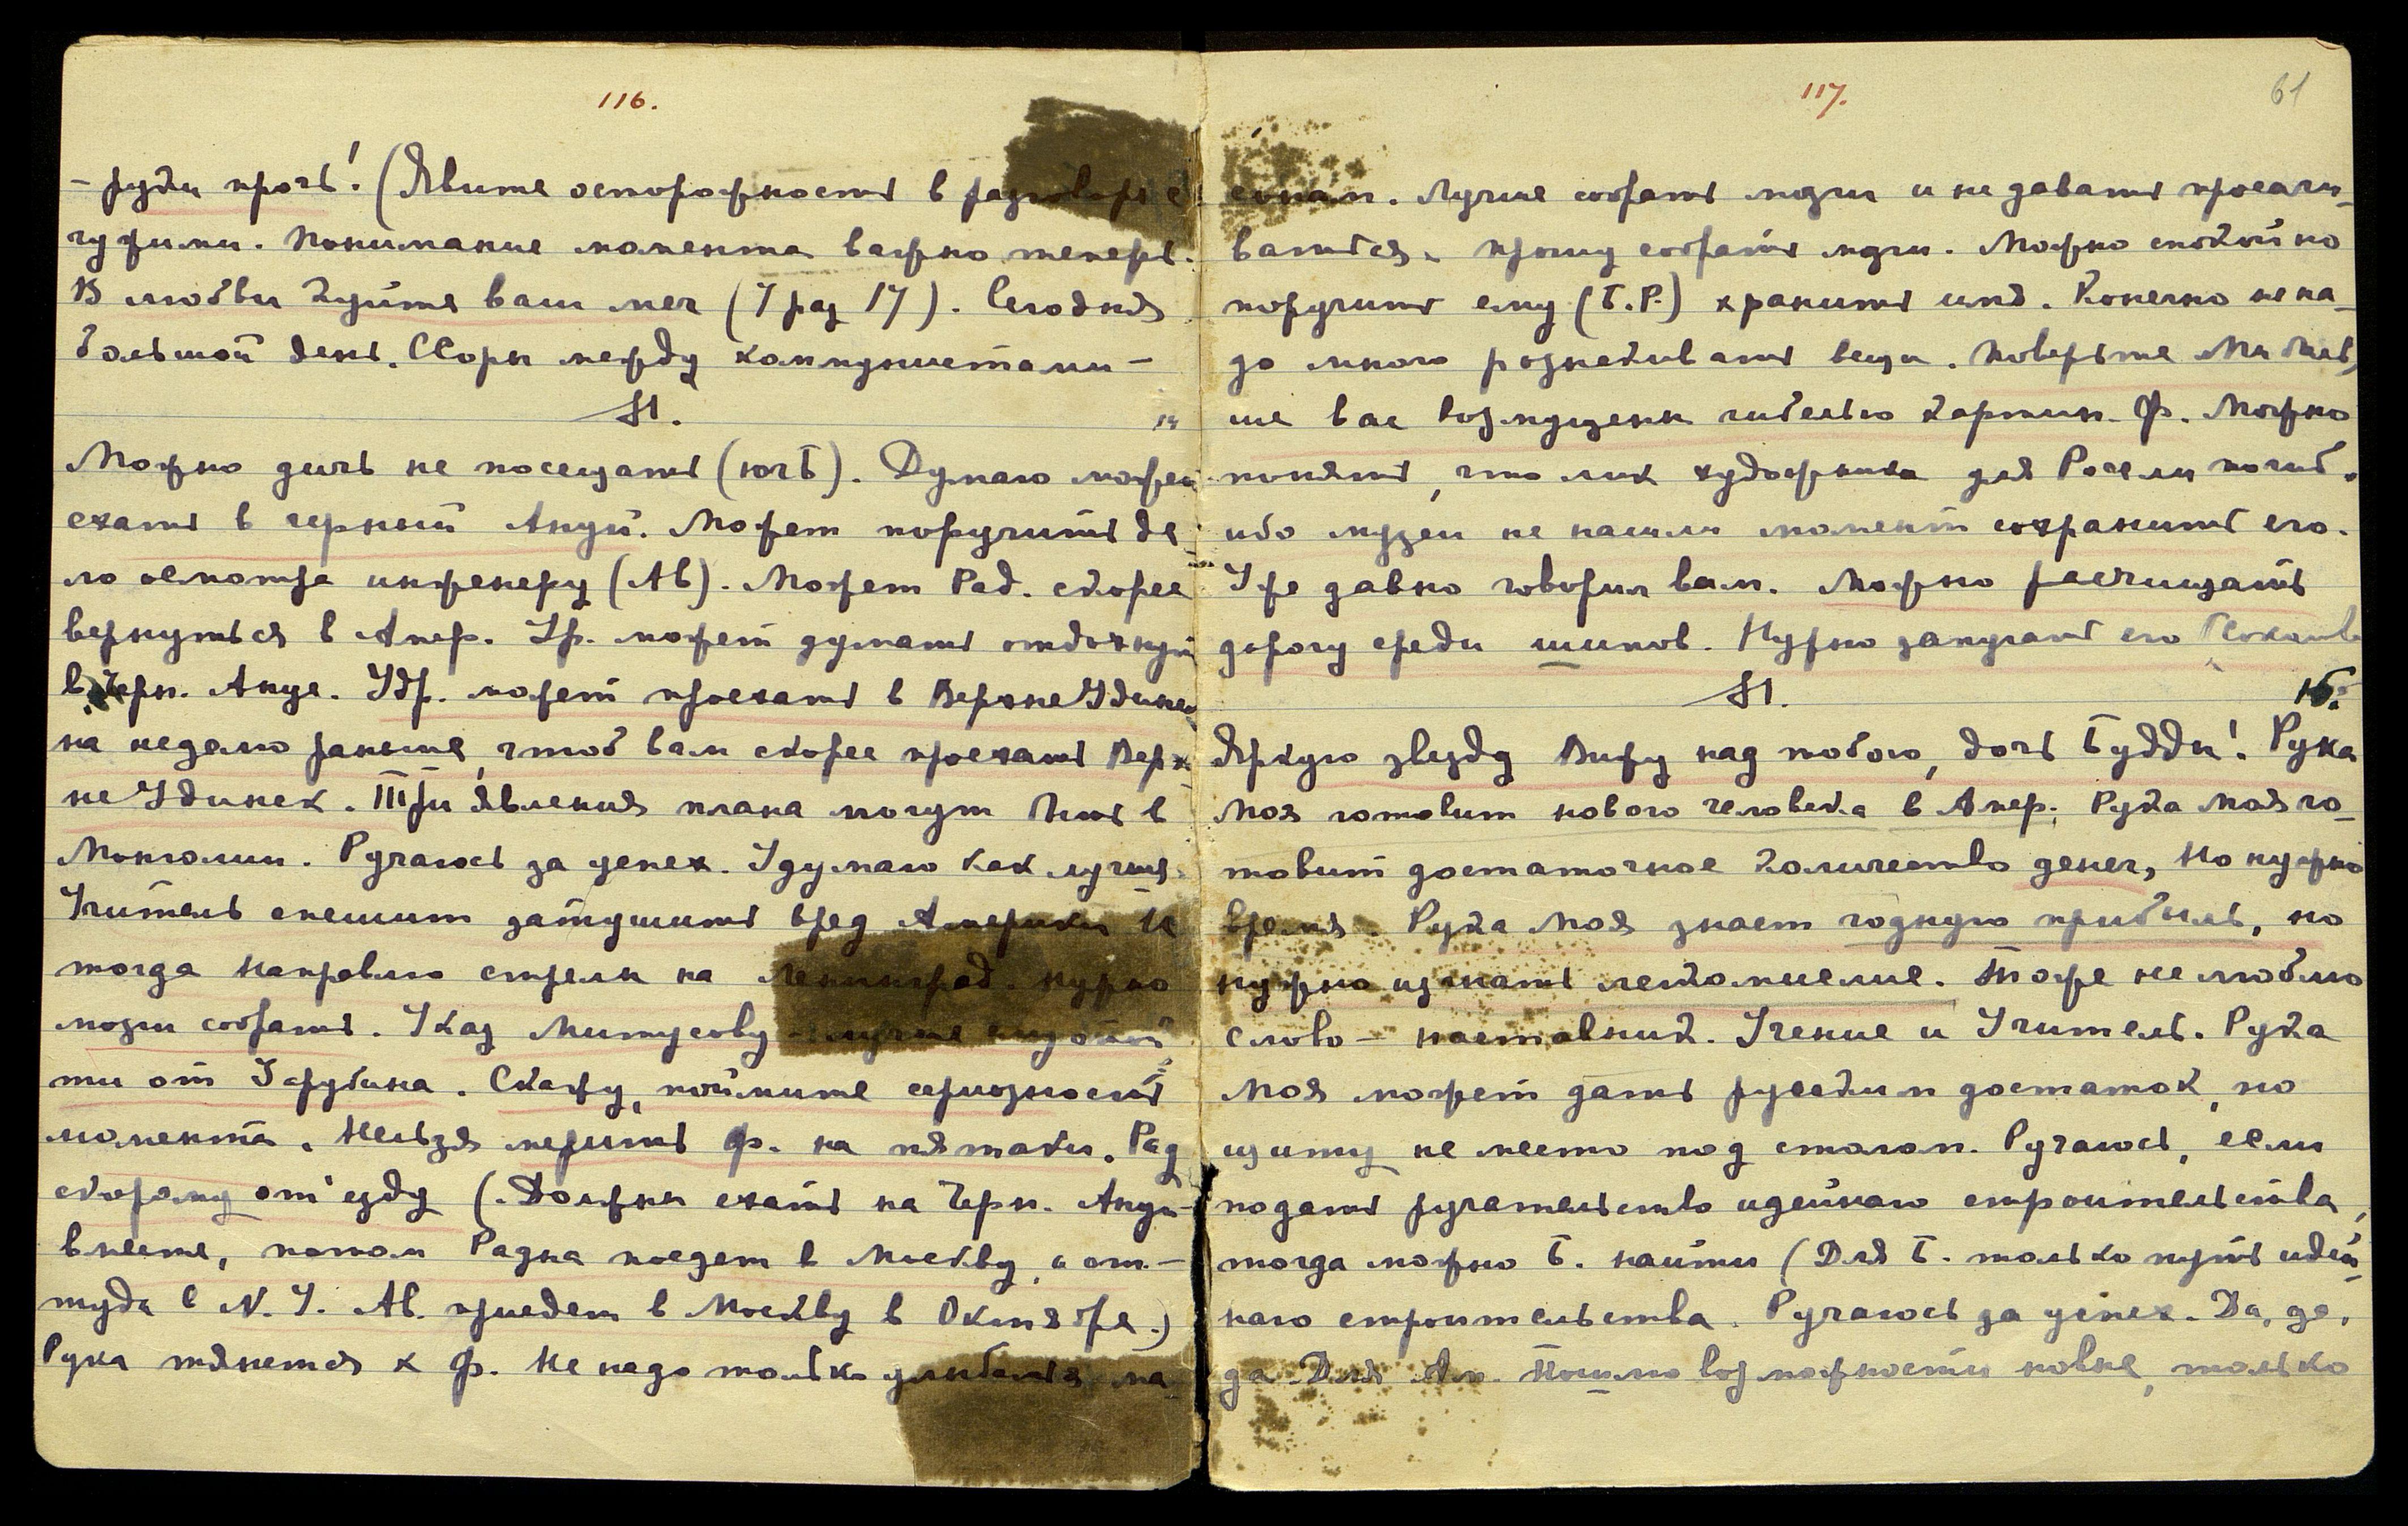 116.
– руки прочь! (Явите осторожность в разговоре с
чужими. Понимание момента важно теперь.
В любви куйте ваш меч (7 раз 17). Сегодня
большой день. Ссоры между коммунистами –
Можно дичь не посещать (юсБ). Думаю может
ехать в черный Ануй. Может поручить де
ло осмотра инженеру (Ав). Может Рад. скорее
вернуться в Амер. Ур. может думать отдохнуть
в Черн. Ануе. Удр. может проехать в ВерхнеУдинск
на неделю раньше, чтоб вам скорее проехать Верх
неУдинск. Три явления плана могут быть в
Монголии. Ручаюсь за успех. Удумаю как лучше.
Учитель спешит затушить вред Америки и
тогда направлю стрелы на Ленинград. Нужно
мозги собрать. Указ Митусову – лучше
ти от Зарубина. Скажу, поймите сериозность
момента. Нельзя мерить Ф. на пятаки. Рад
скорому от'езду (Должны ехать на Черн. Ануй –
вместе, потом Радна поедет в Москву, а от –
туда в N. Y. Ав. приедет в Москву в Октябре.)
Рука тянется к Ф. Не надо только улыбаться ма
117.
61
сонам. Лучше собрать мозги и не давать просачи
ваться. Прошу собрать мозги. Можно спокойно
поручить ему (Б.Р.) хранить имя. Конечно не на –
до много рознавать вещи. Поверьте Мы больше
ше вас возмущены гибелью картин. Ф. Можно
понять, что лик художника для России погиб.
ибо музеи не нашли момент сохранить его.
Уже давно говорил вам. Можно расчищать
дорогу среди шипов. Нужно запугать его
16.
Яркую звезду Вижу над тобою, дочь Будды! Рука
Моя готовит нового человека в Амер. Рука Моя го –
товит достаточное количество денег, но нужно
время. Рука Моя знает годную прибыль, но
нужно изгнать легкомыслие. Тоже не люблю
слово – наставник. Учение и Учитель. Рука
Моя может дать русским достаток, но
щиту не место под столом. Ручаюсь, если
подать ручательство идейного строительства,
тогда можно Б. найти (Для Б. только путь идей
наго строительства. Ручаюсь за успех. Да, да,
да Для Ам. Пошлю возможности новые, только